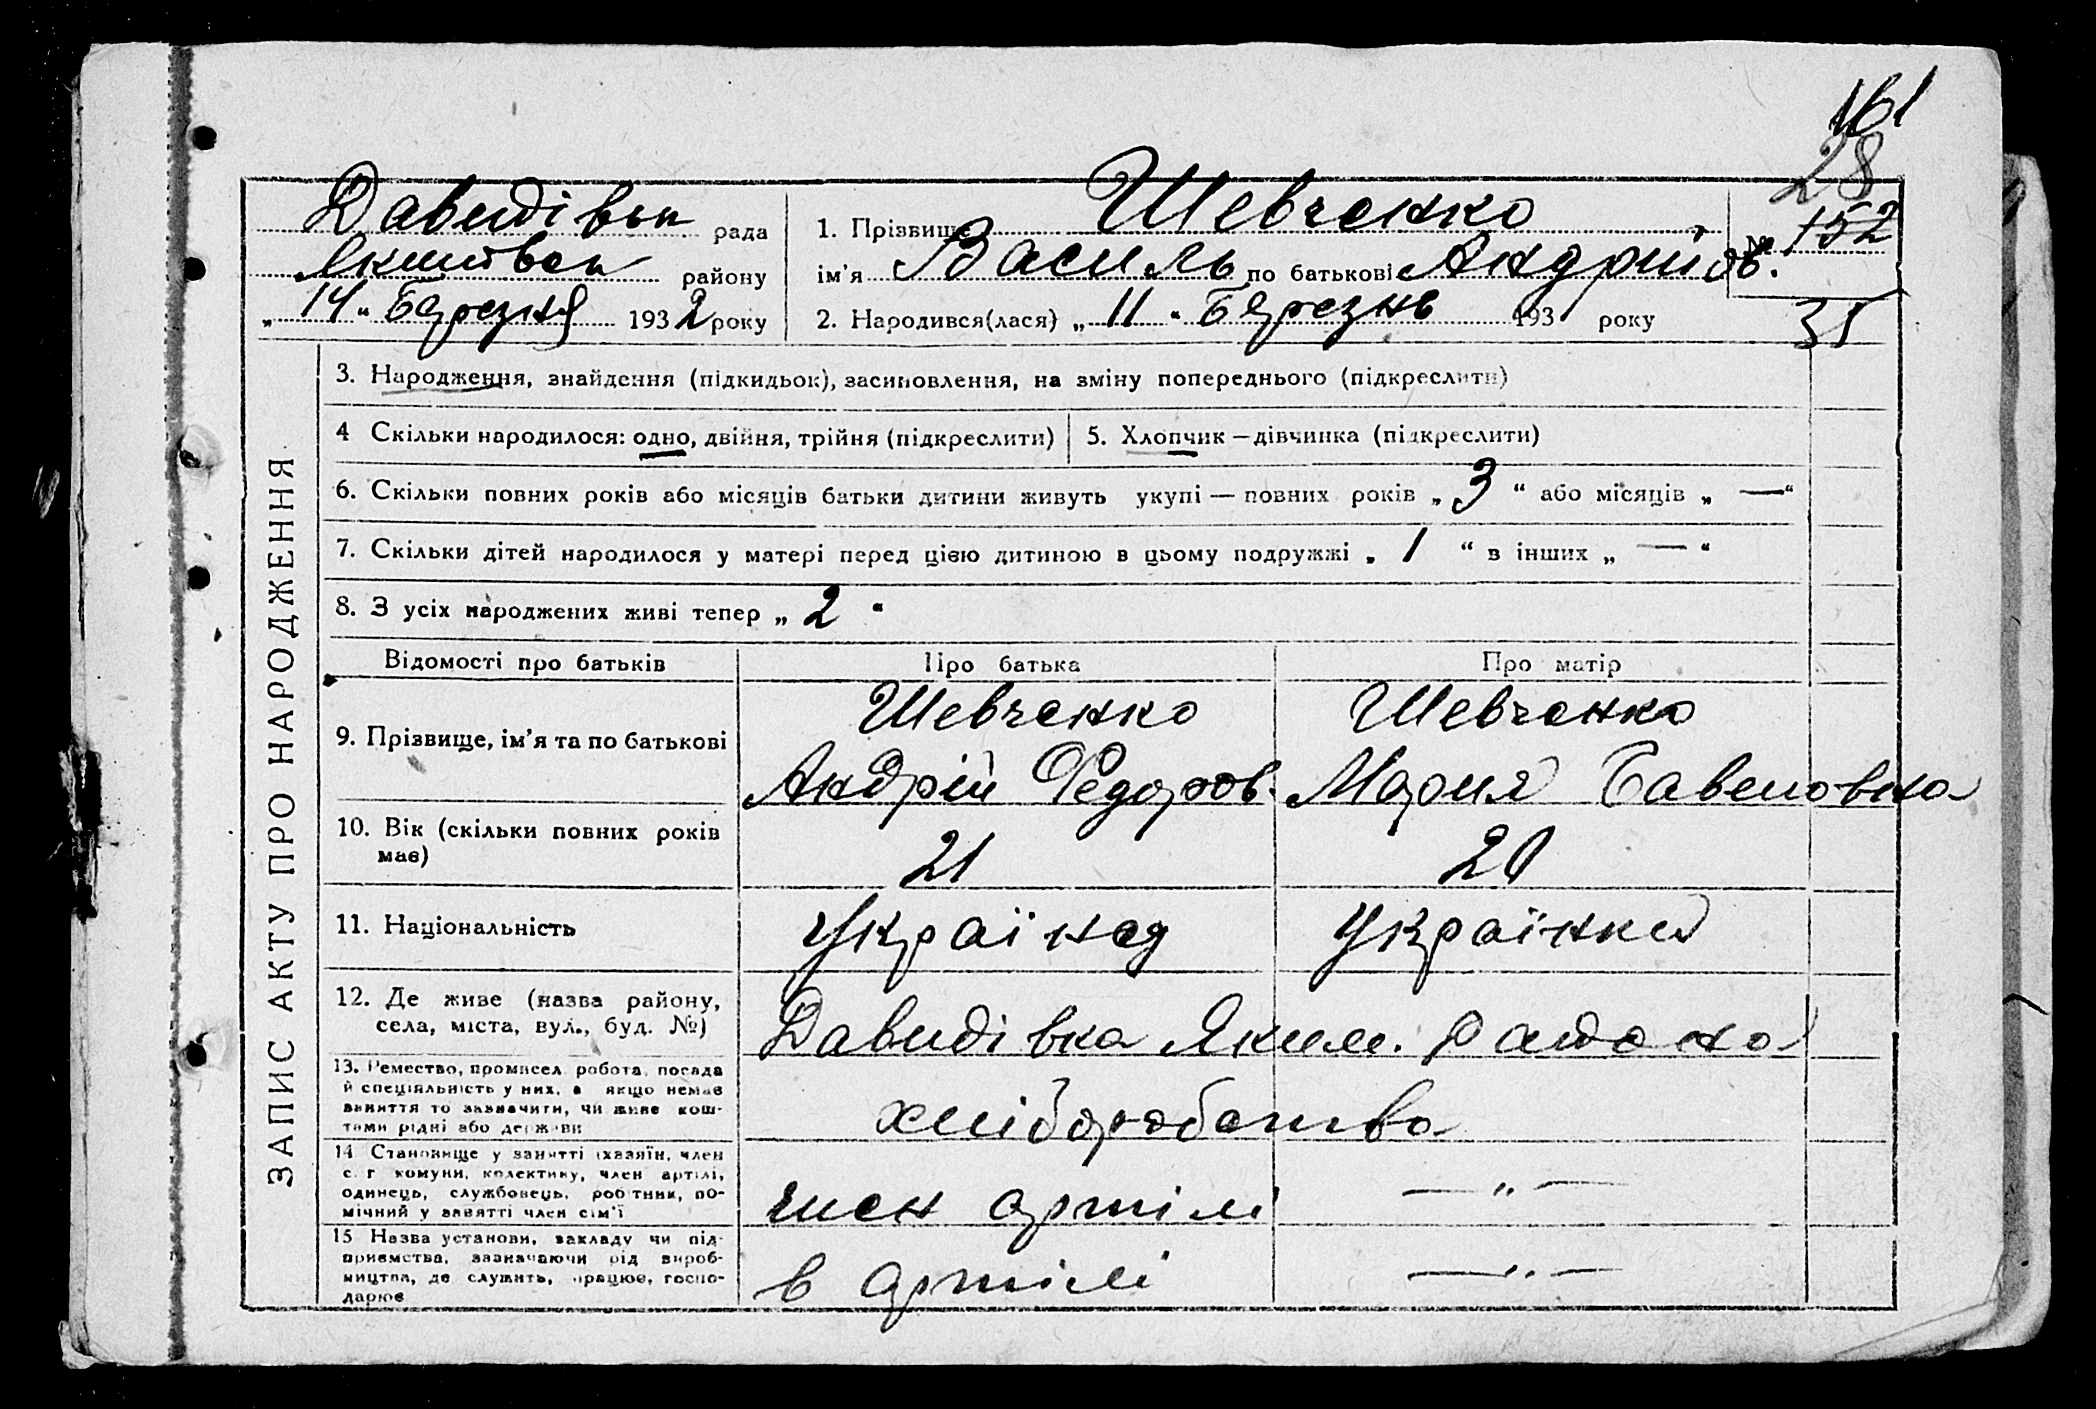 161
28
152
№
35
Давидівськ рада
Якимівськ району
„ 14 " Березня 1932 року
1. Прізвище Шевченко
ім'я Василь по батькові Андрійов.
2. Народився(лася) „ 11 " Березнь 193 року
ЗАПИС АКТУ ПРО НАРОДЖЕННЯ
3. Народження, знайдення (підкидьок), засиновлення, на зміну попереднього (підкреслити)
4 Скільки народилося: одно, двійня, трійня (підкреслити)
5. Хлопчик — дівчинка (підкреслити)
6. Скільки повних років або місяців батьки дитини живуть укупі — повних років „ 3 " або місяців „ — "
7. Скільки дітей народилося у матері перед цією дитиною в цьому подружжі „ 1 " в інших „ — "
8. З усіх народжених живі тепер „ 2 "
Відомості про батьків Про батька Про матір
9. Прізвище, ім'я та по батькові
Шевченко
Андрій Федоров.
Шевченко
Мария Савеловна
10. Вік (скільки повних років
має)
21 20
11. Національність Українец Українка
12. Де живе (назва району,
села, міста, вул., буд. №)
Давидівка Яким. району
13. Ремество, промисел, робота, посада
й спеціяльність у них, а якщо немає
заняття то зазначити, чи живе кош-
тами рідні або держави
хліборобство
14 Становище у занятті (хазяїн, член
с. г комуни, колективу, член артілі,
одинець, службовець, робітник, по-
мічний у занятті член сім'ї
член артілі — " —
15 Назва установи, закладу чи під-
приємства, зазначаючи рід вироб-
ництва, де служить, працює, госпо-
дарює
в артілі — " —